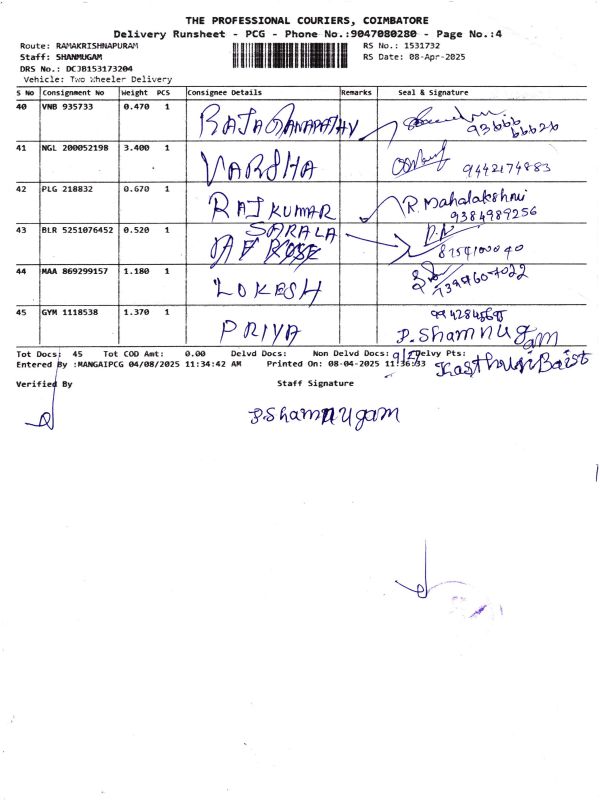 THE PROFESSIONAL COURIERS, COIMBATORE
Delivery Runsheet - PCG - Phone No.:9047080280 - Page No.:4
Route: RAMAKRISHNAPURAM RS No.: 1531732
Staff: SHANMUGAM RS Date: 08-Apr-2025
DRS No.: DCJB153173204
Vehicle: Two Wheeler Delivery
S No Consignment No Weight PCS Consignee Details Remarks Seal & Signature
40 VNB 935733 0.470 1 RAJAGANAPATHY
93666
66626
41 NGL 200052198 3.400 1 VARSHA 9442174883
42 PLG 218832 0.670 1 RAJ KUMAR R. Mahalakshmi
9384989256
43 BLR 5251076452 0.520 1 SARALA
8754100040
44 MAA 869299157 1.180 1 LOKESH
45 GYM 1118538 1.370 1 PRIYA
P. Shamnugam
Tot Docs: 45 Tot COD Amt: 0.00 Delvd Docs: Non Delvd Docs: Delvy Pts:
Entered By :MANGAIPCG 04/08/2025 11:34:42 AM Printed On: 08-04-2025 11:36:33
Verified By Staff Signature
P.Shamnugam